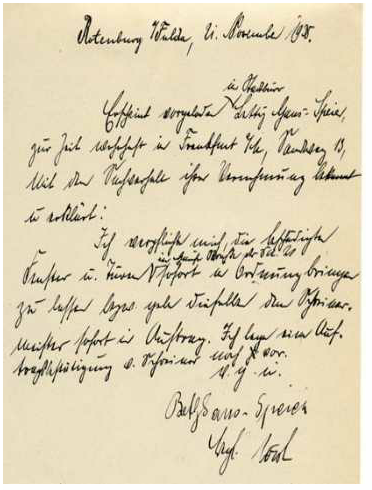 Rotenburg / Fulda, 21. November 1938.
in Stadtbüro
Erscheint vorgeladen Betty Gans-Speier,
zur Zeit wohnhaft in Frankfurt Sandweg 13,
Mit dem Sachverhalt ihrer Vernehmung bekannt
u erklärt:
Ich verpflichte mich die beschädigten
im Hause
Fenster u. Türen sofort in Ordnung bringen
zu lassen bezw. gebe diesfalls dem Schreiner-
meister sofort in Auftrag. Ich lege eine Auf-
tragsbestätigung v. Schreiner noch vor.
v. g. u.
Betty Gans-Speier